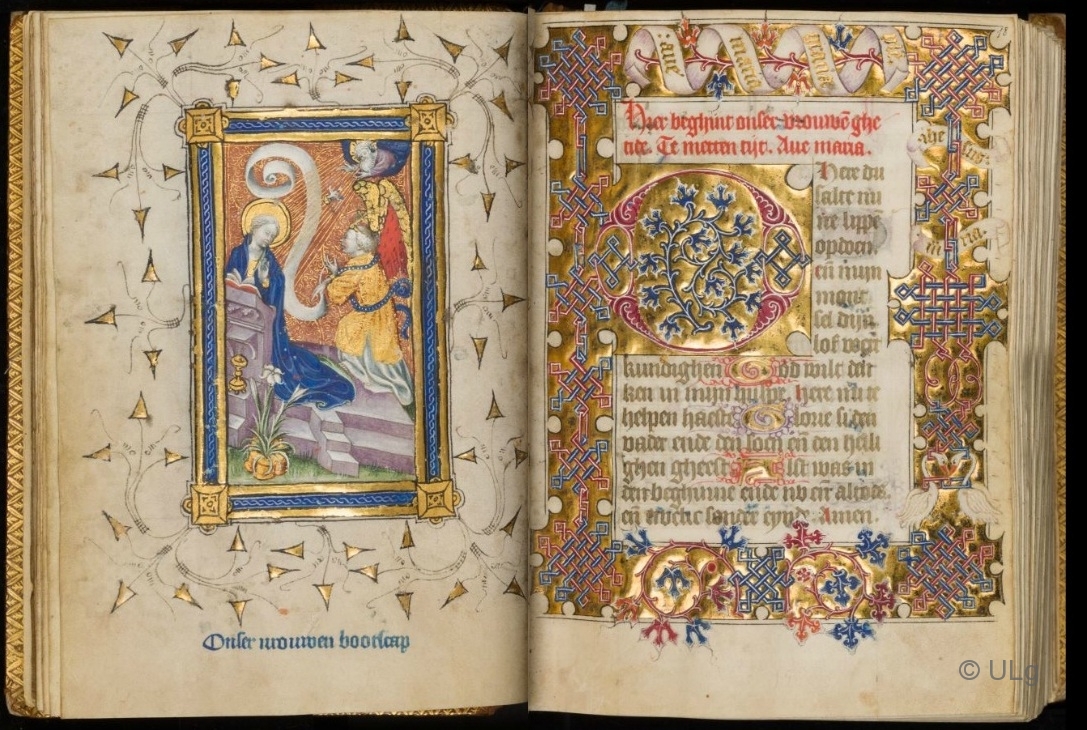 Onser vrouwen bootscap
aue maria
Hier beghint onser vrouwē ghe
tide. Te metten tijt. Aue maria.
Here du
salte mi
ne lippe
opdoen.
eñ mijn
mont
sel dijn
lof voert
kundighen God wilt den
ken in mijn hulpe. here mi te
helpen haeste Glorie si den
vader ende den soen eñ den heili
ghen gheest Alst was in
den beghinne ende nv eñ altoes
eñ ewelic sonder eynde. Amen.
© ULg